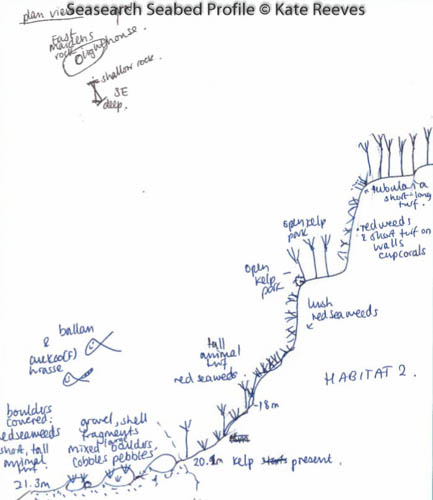 Seasearch Seabed Profile © Kate Reeves
plan view
East
Maidens
rock
lighthouse.
shallow rock.
SE
deep.
tubularia
short-long
turf.
red weeds
& short turf on
walls
cupcorals
open kelp
park
open
kelp
park
lush
red seaweeds
tall
animal
turf
red seaweeds.
HABITAT 2.
ballan
&
cuckoo(f)
wrasse
-18m
boulders
covered:
redseaweeds
short, tall
animal
turf
21.3m
gravel, shell
fragments
mixed boulders
cobbles pebbles.
kelp present.